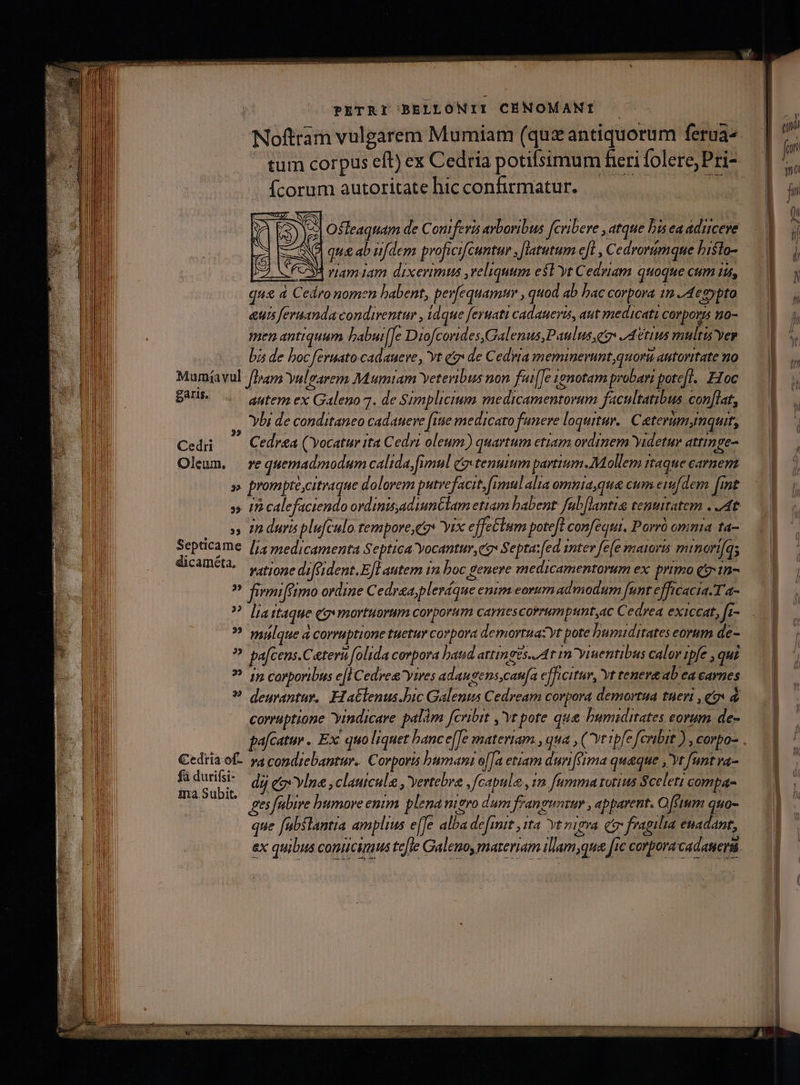 PETRI BELLONII CENOMANI
Noſtram vulgarem Mumiam (quæ antiquorum ſerua-
tum corpus eſt) ex Cedria potiſsimum fieri ſolere, Pri-
ſcorum autoritate hic confirmatur.
POſteaquam de Coniferis arboribus ſcribere, atque his ea adiicere
quæ ab iiſdem proficiſcuntur, ſtatutum eſt, Cedrorúmque hiſto-
riam iam dixerimus, reliquum eſt vt Cedriam quoque cum iis,
quæ à Cedro nomen habent, perſequamur, quod ab hac corpora in Aegypto
æuis ſeruanda condirentur, idque ſeruati cadaueris, aut medicati corporis no-
men antiquum habuiſſe Dioſcorides, Galenus, Paulus, & Aëtius multis ver
bis de hoc ſeruato cadauere, vt & de Cedria meminerunt, quorū autoritate no
Mumia vul ſtram vulgarem Mumiam veteribus non fuiſſe ignotam probari poteſt. Hoc
garis. autem ex Galeno 7. de Simplicium medicamentorum facultatibus conſtat,
vbi de conditaneo cadauere ſiue medicato funere loquitur. Cæterùm, inquit,
Cedri ” Cedræa (vocatur ita Cedri oleum) quartum etiam ordinem videtur attinge-
Oleum. re quemadmodum calida, ſimul & tenuium partium. Mollem itaque carnem
” promptè, citraque dolorem putrefacit, ſimul alia omnia, quæ cum eiuſdem ſint
” in calefaciendo ordinis, adiunctam etiam habent ſubſtantiæ tenuitatem. At
” in duris pluſculo tempore, & vix effectum poteſt conſequi. Porrò omnia ta-
Septica me lia medicamenta Septica vocantur, & Septa: ſed inter ſeſe maioris minoriſq;
dicamēta. ratione diſſident. Eſt autem in hoc genere medicamentorum ex primo & in-
” firmiſsimo ordine Cedræa, pleráque enim eorum admodum ſunt efficacia. Ta-
” lia itaque & mortuorum corporum carnes corrumpunt, ac Cedrea exiccat, ſi-
” múlque à corruptione tuetur corpora demortua: vt pote humiditates eorum de-
” paſcens. Cæterū ſolida corpora haud attingēs. At in viuentibus calor ipſe, qui
” in corporibus eſt Cedreæ vires adaugens, cauſa efficitur, vt teneræ ab ea carnes
” deurantur. Hactenus hic Galenus Cedream corpora demortua tueri, & à
corruptione vindicare palàm ſcribit, vt pote quæ humiditates eorum de-
paſcatur. Ex quo liquet hanc eſſe materiam, qua, (vt ipſe ſcribit), corpo-
Cedria oſ- ra condiebantur. Corporis humani oſſa etiam duriſsima quæque, vt ſunt ra-
ſa duriſsi- dij & vlnæ, clauiculæ, vertebræ, ſcapulæ, in ſumma totius Sceleti compa-
ma Subit. ges ſubire humore enim plena nigro dum franguntur, apparent. Oſsium quo-
que ſubſtantia amplius eſſe alba deſinit, ita vt nigra & fragilia euadant,
ex quibus coniicimus teſte Galeno, materiam illam, quæ ſic corpora cadaueris